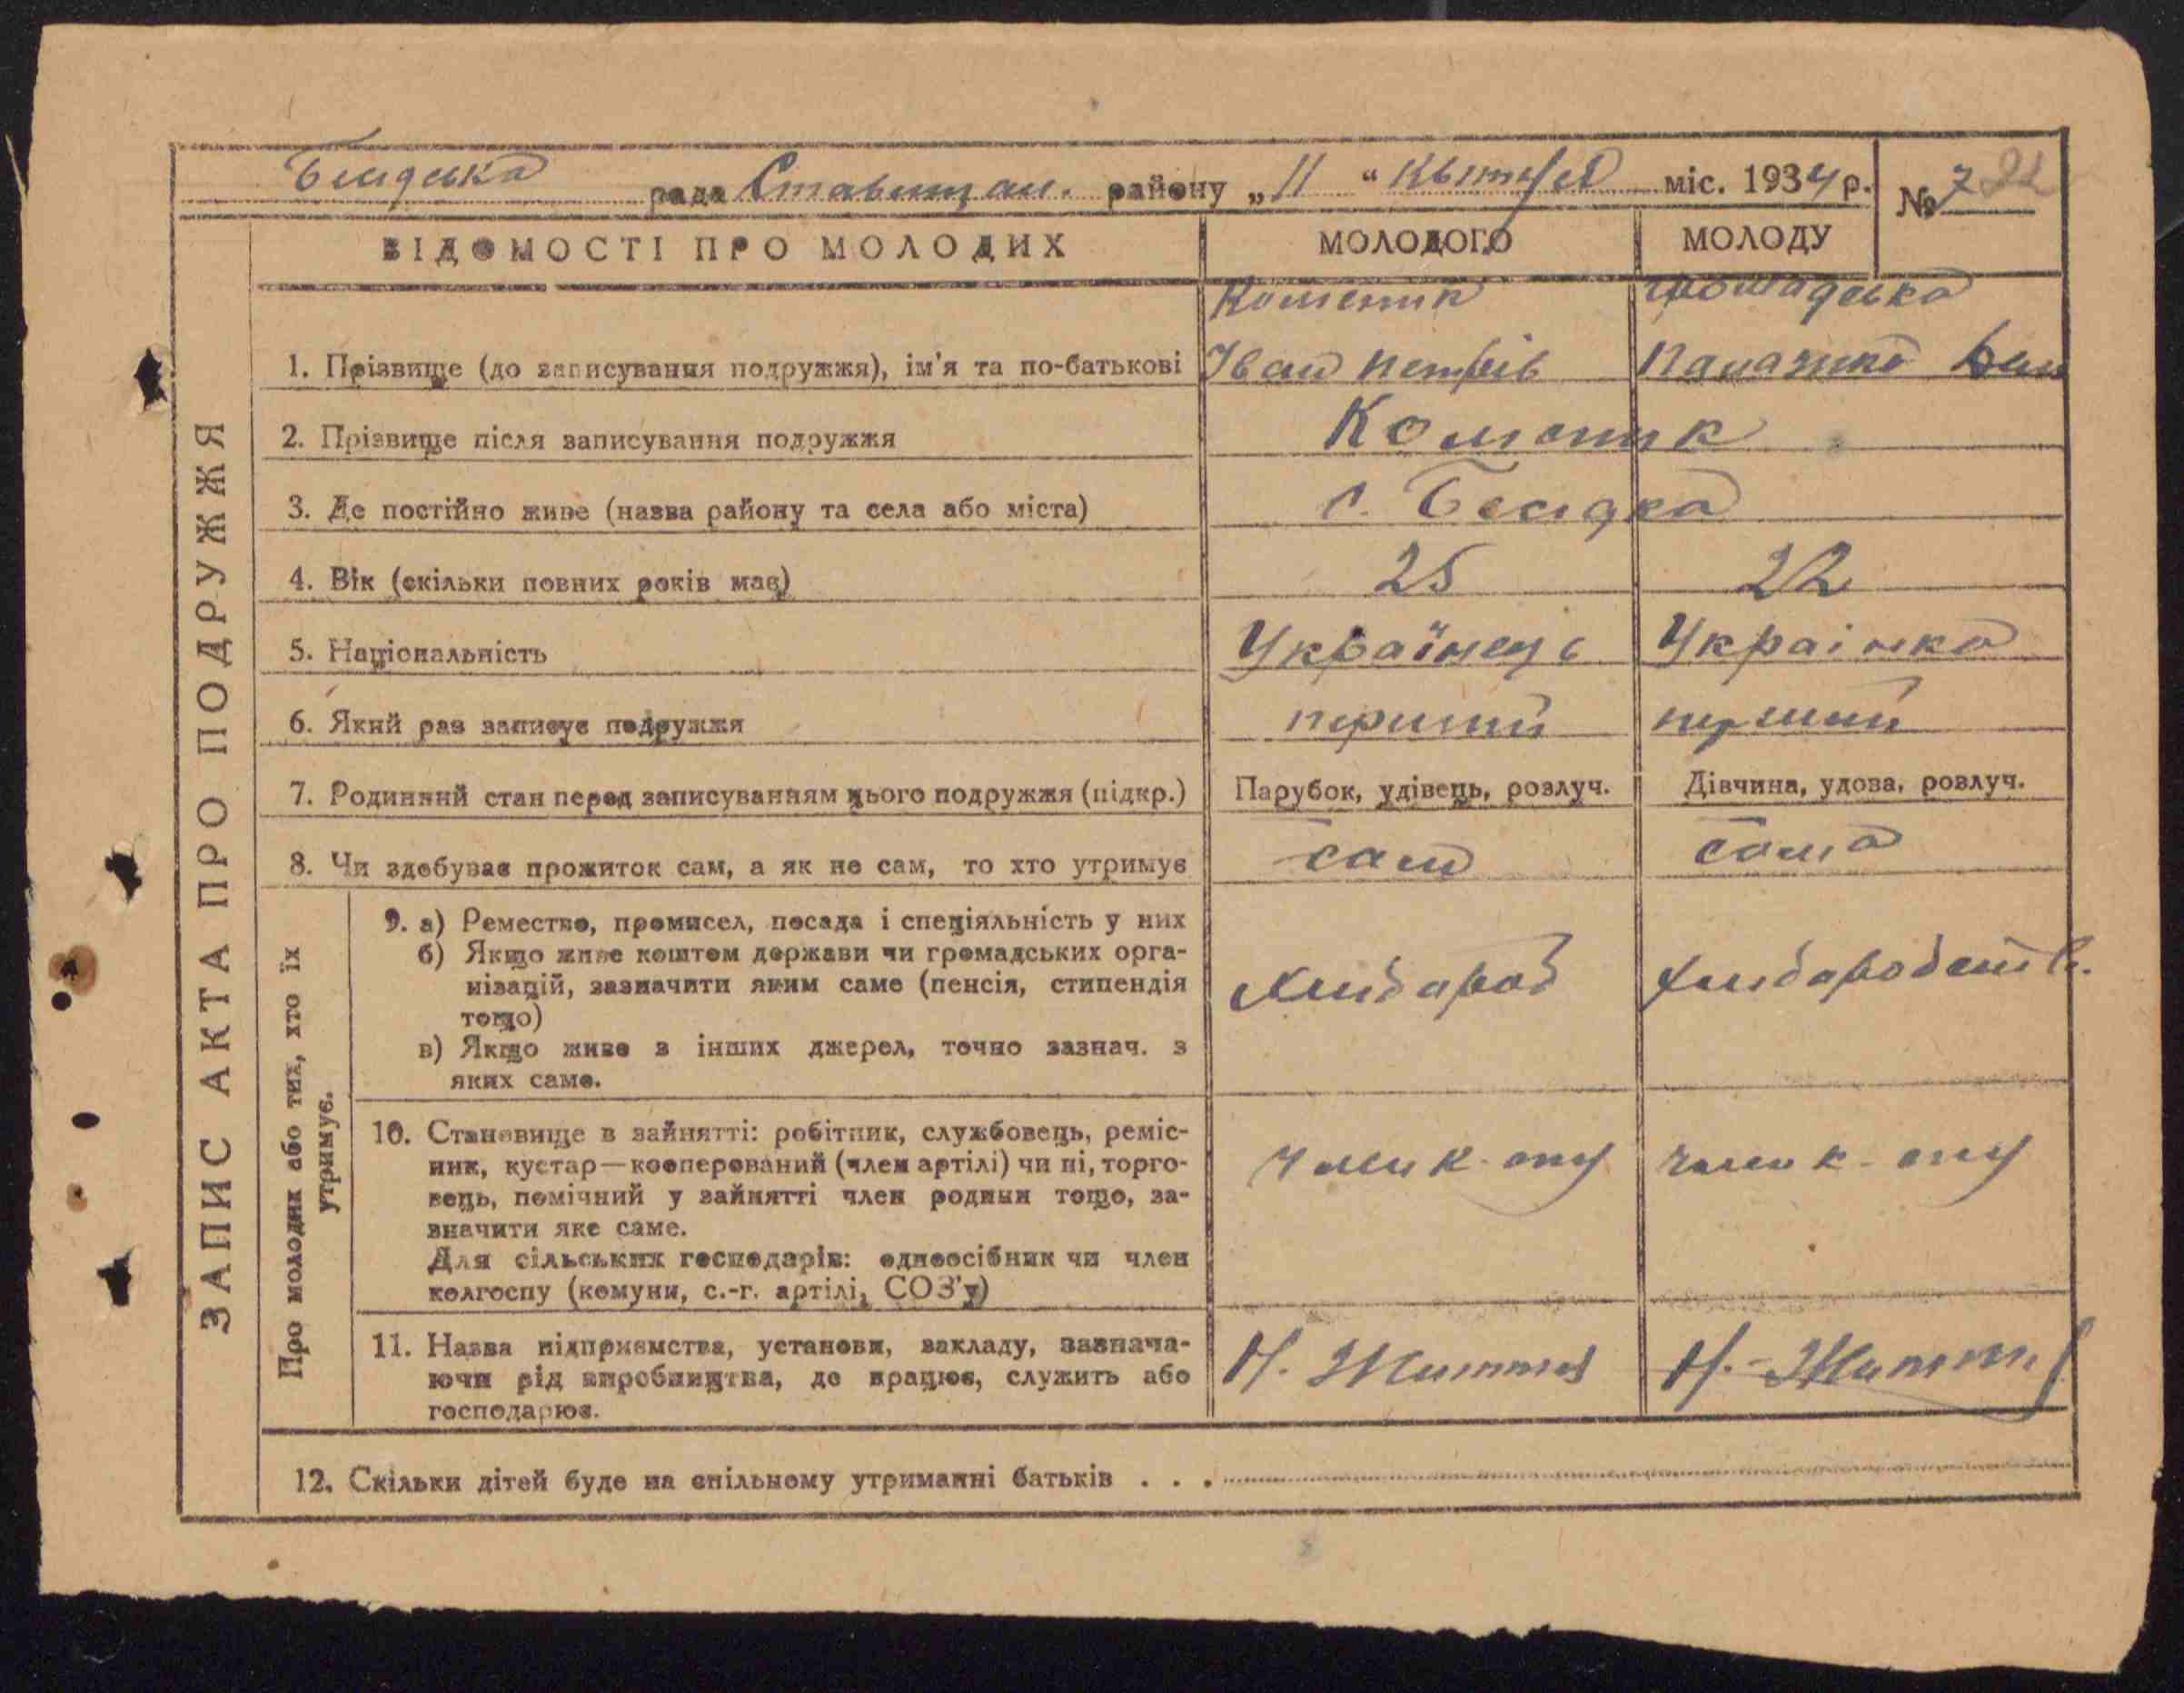 Бесидська рада Ставищан. району „11“ Квітня міс. 1934 р. № 7
ВІДОМОСТІ ПРО МОЛОДИХ МОЛОДОГО МОЛОДУ
ЗАПИС АКТА ПРО ПОДРУЖЖЯ
1. Прізвище (до записування подружжя), ім'я та по-батькові Іван Петрів
2. Прізвище після записування подружжя
3. Де постійно живе (назва району та села або міста) с. Бесидка
4. Вік (скільки повних років має) 25 22
5. Національність Українець Украінка
6. Який раз записує подружжя перший перший
7. Родинний стан перед записуванням цього подружжя (підкр.) Парубок, удівець, розлуч. Дівчина, удова, розлуч.
8. Чи здобуває прожиток сам, а як не сам, то хто утримує сам сама
Про молодих або тих, хто їх
утримує.
9. а) Ремество, промисел, посада і спеціяльність у них
б) Якщо живе коштом держави чи громадських орга-
нізацій, зазначити яким саме (пенсія, стипендія Хлібороб
тощо)
в) Якщо живе з інших джерел, точно зазнач. з
яких саме.
10. Становище в зайнятті: робітник, службовець, реміс-
ник, кустар—кооперований (член артілі) чи ні, торго-
вець, помічний у зайнятті член родини тощо, за-
значити яке саме.
Для сільських господарів: одноосібник чи член
колгоспу (комуни, с.-г. артілі, СОЗ'у)
11. Назва підприємства, установи, закладу, зазнача-
ючи рід виробництва, де працює, служить або Н. Життя Н. Життя
господарює.
12. Скільки дітей буде на спільному утриманні батьків . . .